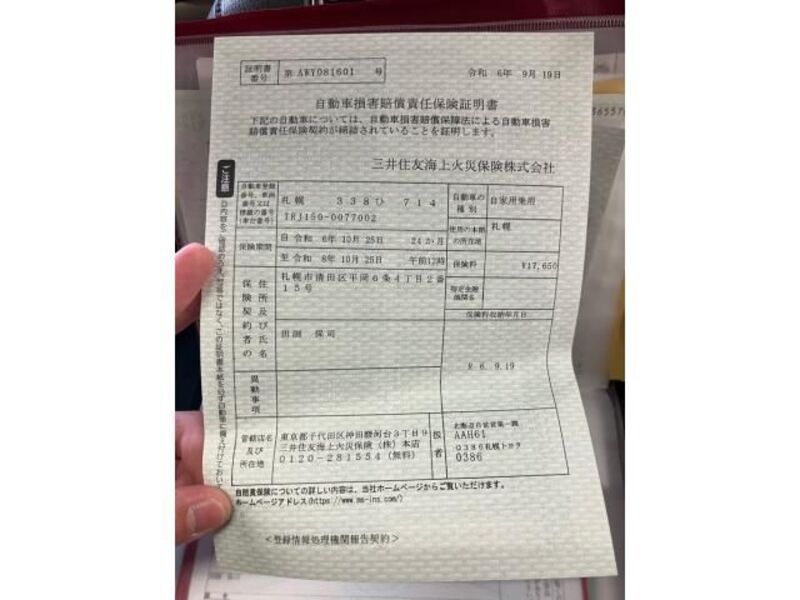 証明書番号 第 AWY081601 号
令和 6年 9月 19日
自動車損害賠償責任保険証明書
下記の自動車については、自動車損害賠償保障法による自動車損害
賠償責任保険契約が締結されていることを証明します。
三井住友海上火災保険株式会社
ご注意
自動車登録番号、車両番号又は標識の番号(車台番号)
札幌 338ひ 714
TRJ150-0077002
自動車の種別 自家用乗用
使用の本拠の所在地 札幌
保険期間
自 令和 6年 10月 25日 24か月
至 令和 8年 10月 25日 午前12時
保険料 ¥17,650
保険契約者の住所及び氏名
札幌市清田区平岡6条4丁目2番
15号
保司
指定金融機関名
保険料収納年月日
R 6. 9.19
異動事項
管轄店名及び所在地
東京都千代田区神田駿河台3丁目9
三井住友海上火災保険(株)本店
0120-281554(無料)
扱者
AAH61
0386札幌トヨタ
0386
自賠責保険についての詳しい内容は、当社ホームページからご覧いただけます。
ホームページアドレス(https://www.ms-ins.com/)
<登録情報処理機関報告契約>